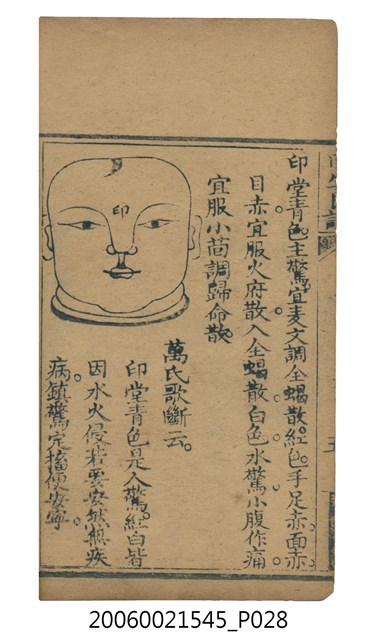 印堂青色主驚宜麦文調全蝎散紅色手足赤面赤
目赤宜服火府散入全蝎散白色水驚小腹作痛
宜服小茴調歸命散
印
萬氏歌斷云
印堂青色是人驚紅白皆
因水火侵若要安然無疾
病鎮驚定搐便安寧
20060021545_P028